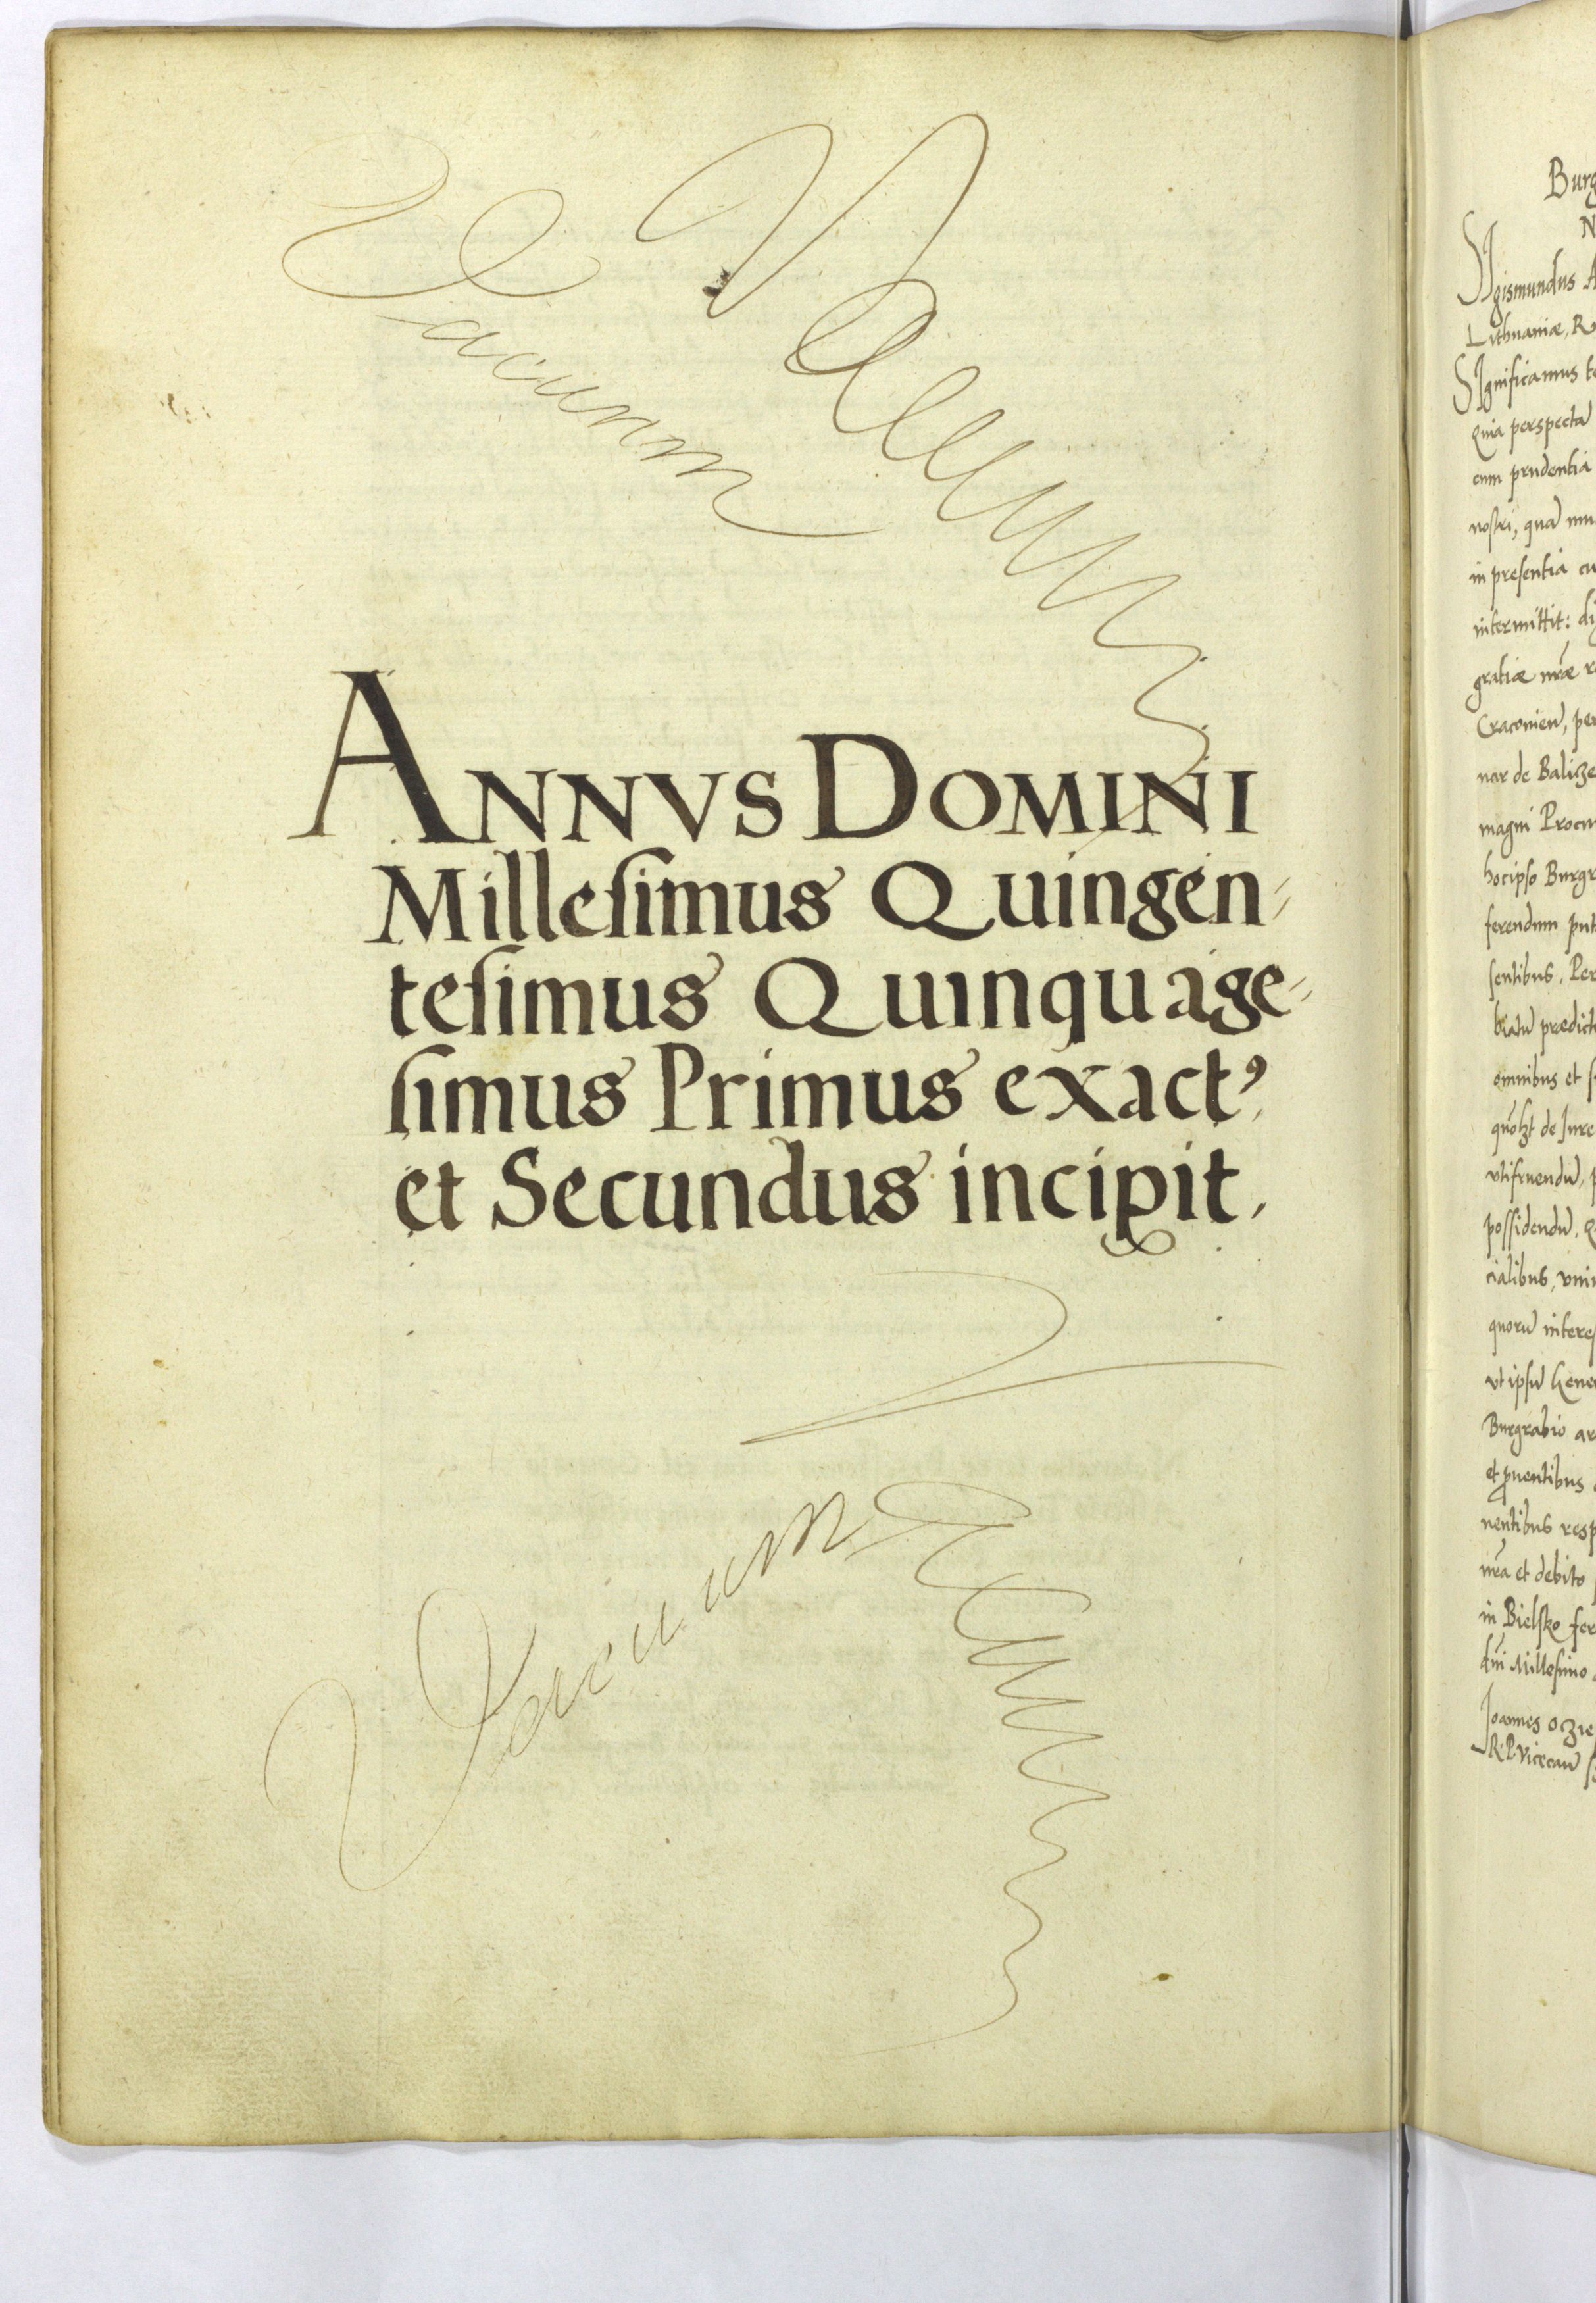 Vacuum
Vacuum
ANNVS DOMINI
Milleſimus Quingen⸗
teſimus Quinquage⸗
ſimus Primus exactꝰ
et Secundus incipit.
Vacuum
Burg
N
SIgismundus A
Lithuaniæ, R
SIgnificamus
quia perspecta
cum prudentia
nostri, qua
in preſentia cu
intermittit: di
gratiæ nr̃æ
Craconien̄, per
nar de Balicze
magni Procu
hocipſo Burgr
ferendum put
ſentibus. Per
biatū prædict
omnibus et
de Iure
vtifruendū,
poſſidendū.
cialibus,
quorū intereſ
vt ipſū
Burgrabio ar
et ꝓuentibus
nentibus reſp
nr̃a et debito
in Bielſko fer
dn̄i Milleſimo
Joannes oczie
R. P. Vicecan̄